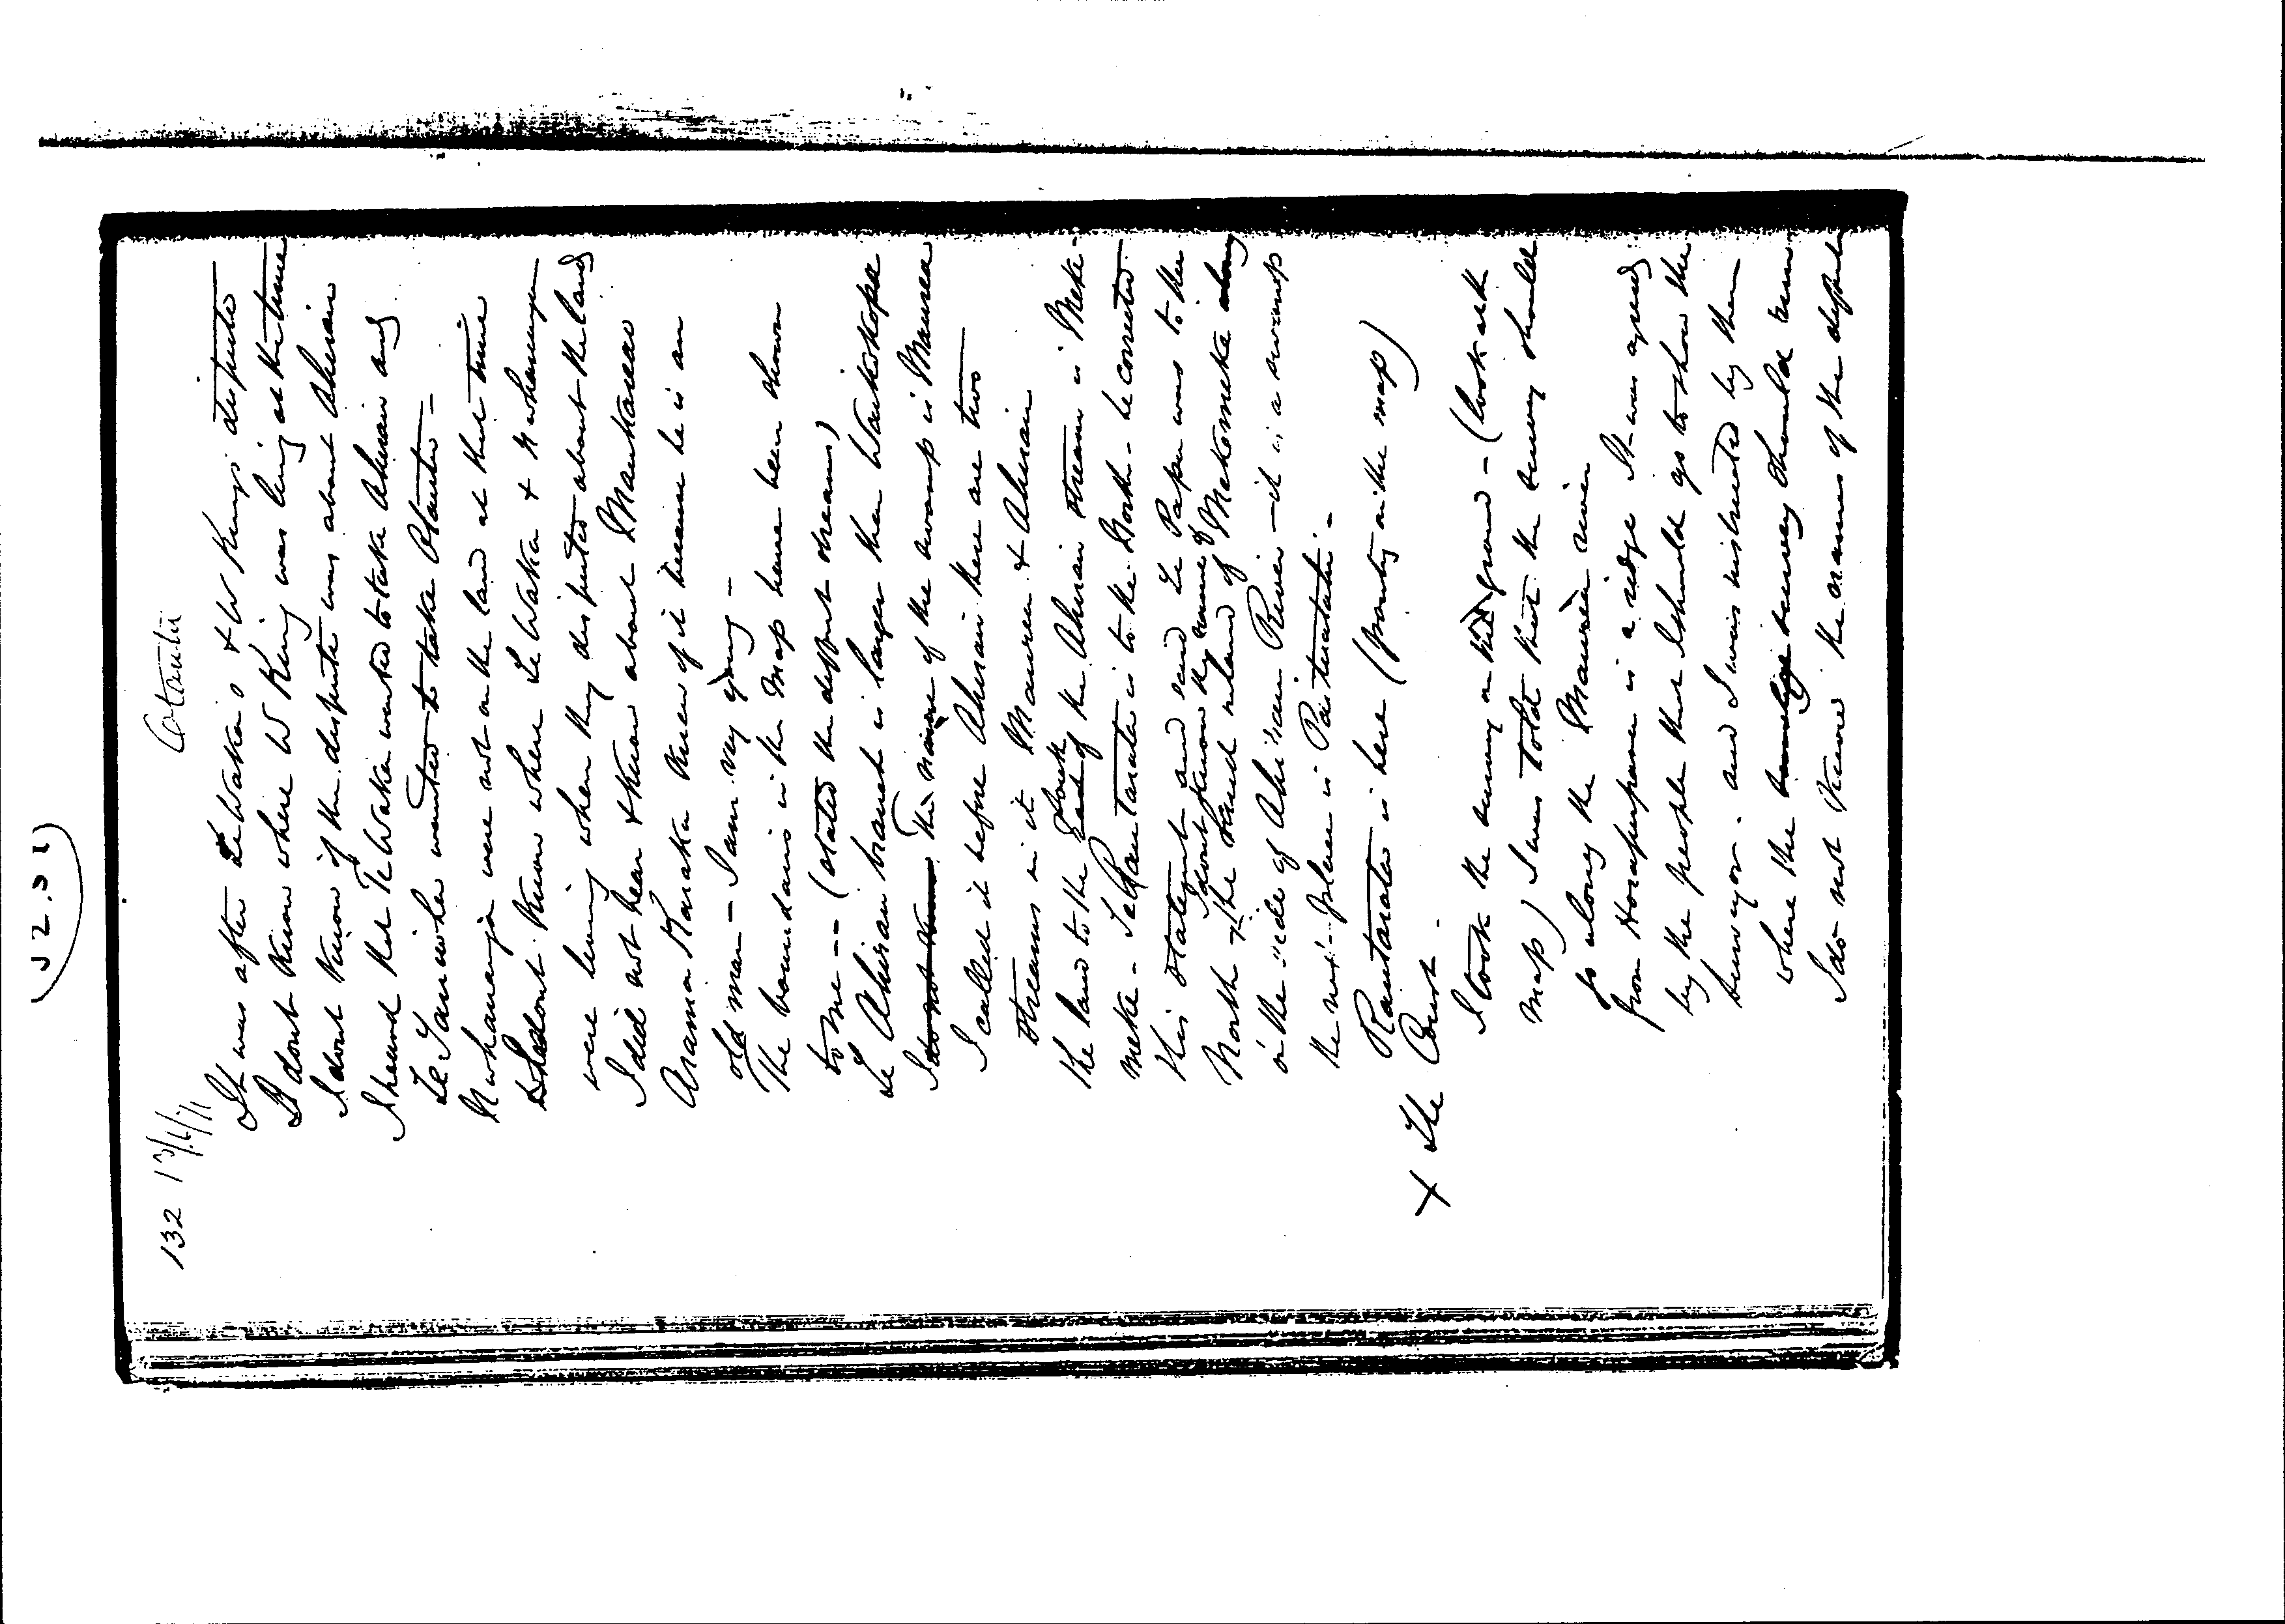 132 13/6/71 Otautu
It was after Te Waka & W Kings dispute
I dont know where W King was living at the time
I dont know if the dispute was about Ahirau
I heard that Te Waka wanted to take Ahirau and
wanted to take Otautu -
Nwhanauga were not on the land at that time
I dont know where Te Waka & Nwhanauga
were living when they disputed about the land
I did not hear & know about
Karaka knew of it because he is an
old man - I am very young -
The boundaries in the Map have been shown
to me -- (stated the diffnt streams)
Te Ahirau branch is larger than Waikokopu
I do not know The name of the swamp is Maurea
I called it before Ahirau there are two
streams in it Maurea & Ahirau
the land to the South of the Ahirau stream is Meke-
meke - Te Rautarata is to the North - he corrected
his statement and said Te Papa was to the
North I dont know the name of the land inland of Mekemeke along
on the side of Ahirau River - it is a swamp
the next place is
Rautarata is here (pointing on the map)
X The Court.
I took the survey on the ground - (look at the
map) I was told that the survey should
go along the Maurea river
from Horopapara is a ridge It was agreed
by the people that I should go to show the
Surveyor. and I was instructed by them
where the survey should run
I do not know the names of the diffnt